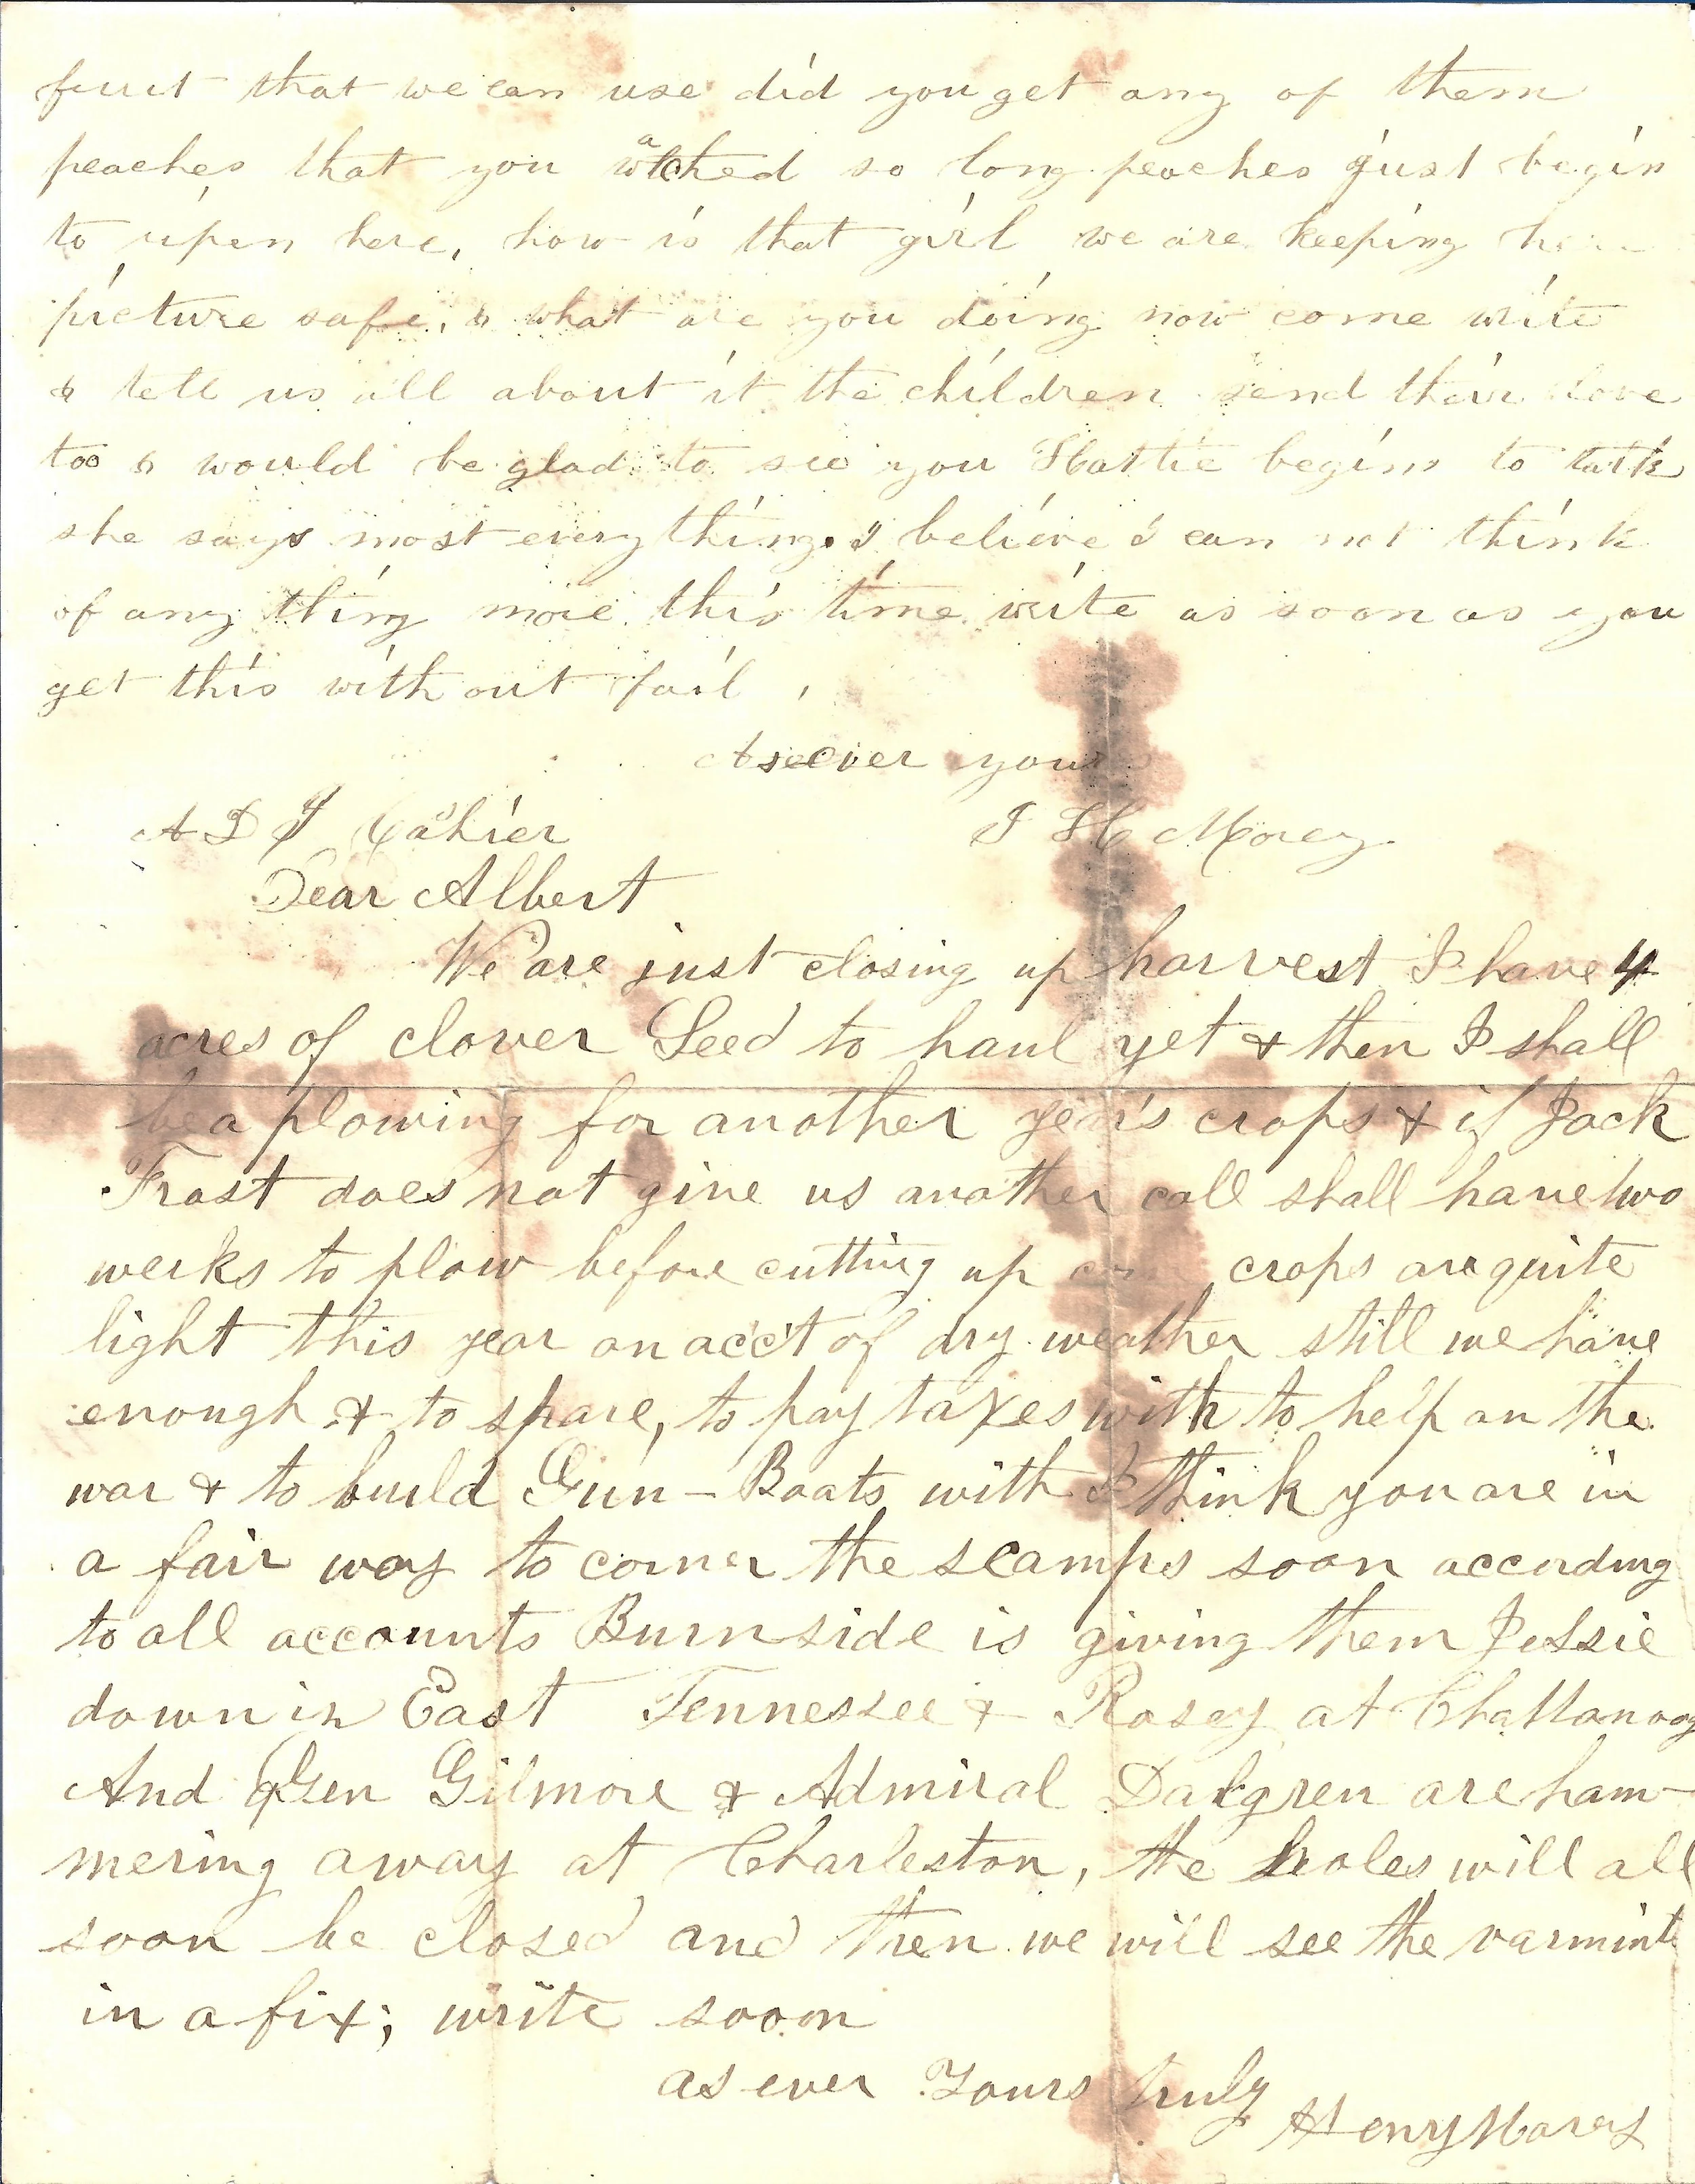 fruit that we can use did you get any of them
peaches that you watched so long peaches just begin
to ripen here, how is that girl we are keeping
picture safe, & what are you doing now come write
& tell us all about it the children send their love
too & would be glad to see you Hattie begins to talk
she says most everything I believe I can not think
of any thing more this time write as soon as you
get this with out fail,
As ever yours
A D Cahier
Morey
Dear Albert
We are just closing up harvest I have 4
acres of clover Seed to haul yet & then I shall
be a plowing for another year's crops & if Jack
Frost does not give us another call shall have two
weeks to plow before cutting up crops are quite
light this year on acc't of dry weather still we have
enough & to spare, to pay taxes with to help on the
war & to build Gun-Boats with I think you are in
a fair way to corner the scamps soon according
to all accounts Burnside is giving them Jessie
down in East Tennessee & Rosey at Chattanoog
And Gen Gilmore & Admiral Dalgren are ham-
mering away at Charleston, the holes will all
soon be closed and then we will see the varmints
in a fix; write soon
as ever Yours truly
Henry Morey